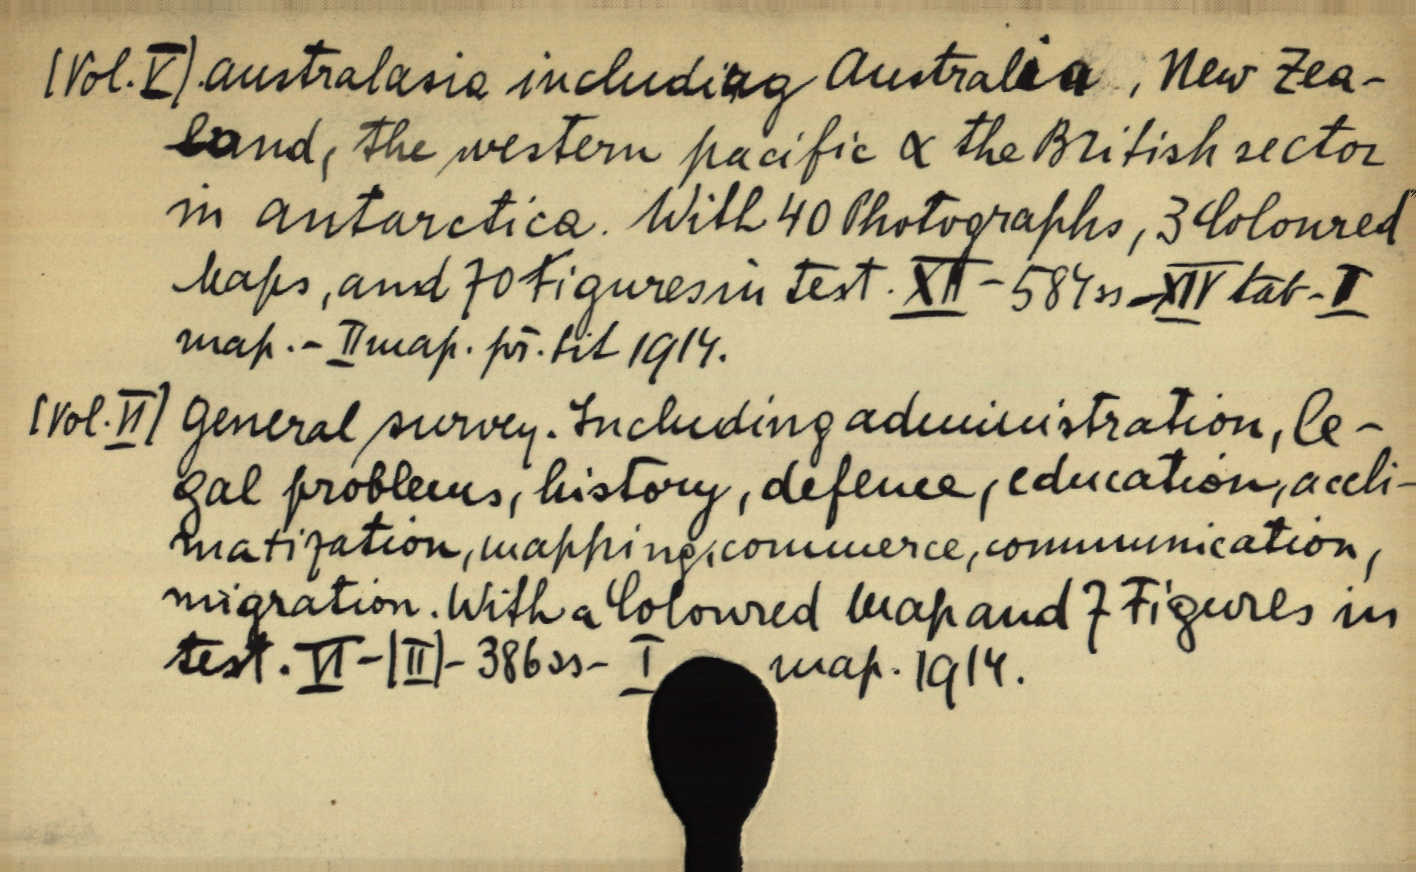 (Vol. V). Australasia including Australia, New Zea-
land, the western pacific & the British sector
in antarctica. With 40 Photographs, 3 Coloured
Maps, and 70 Figures in test. XII - 584 ss - XIV tab - I
map. - II map. př. tit 1914.
(Vol. VI) General survey. Including administration, le-
gal problems, history, defence, education, accli-
matization, mapping, commerce, communication,
migration. With a Coloured Map and 7 Figures in
test. VI - (II) - 386 ss - I map. 1914.